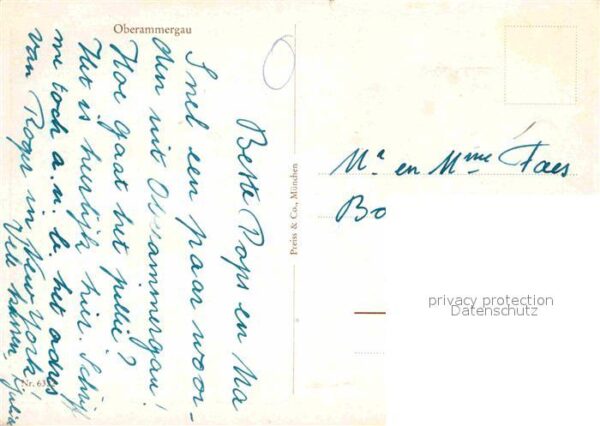 Oberammergau
Beste Pops en Ma
Snel een paar woor-
den uit Oberammergau!
Hoe gaat het jullie?
Het is heerlijk hier. Schrijf
me toch a.u.b. het adres
van Roger in New York!
Vele kussen,
Preiss & Co., München
Mr. en Mme Faes
Bo
privacy protection
Datenschutz